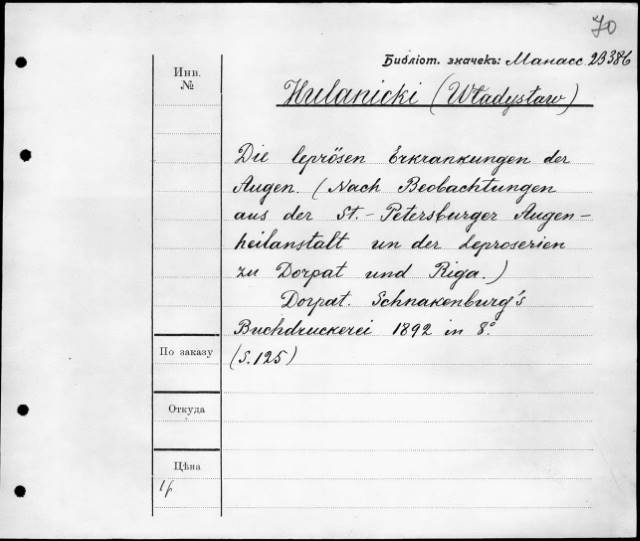 70
Библіот. значекъ: Манасс. 23386
Инв.
№
Hulanicki (Władysław)
Die leprösen Erkrankungen der
Augen. (Nach Beobachtungen
aus der St.-Petersburger Augen-
heilanstalt un der Leproserien
zu Dorpat und Riga.)
Dorpat. Schnakenburg's
Buchdruckerei 1892 in 8°.
(S. 125)
По заказу
Откуда
Цѣна